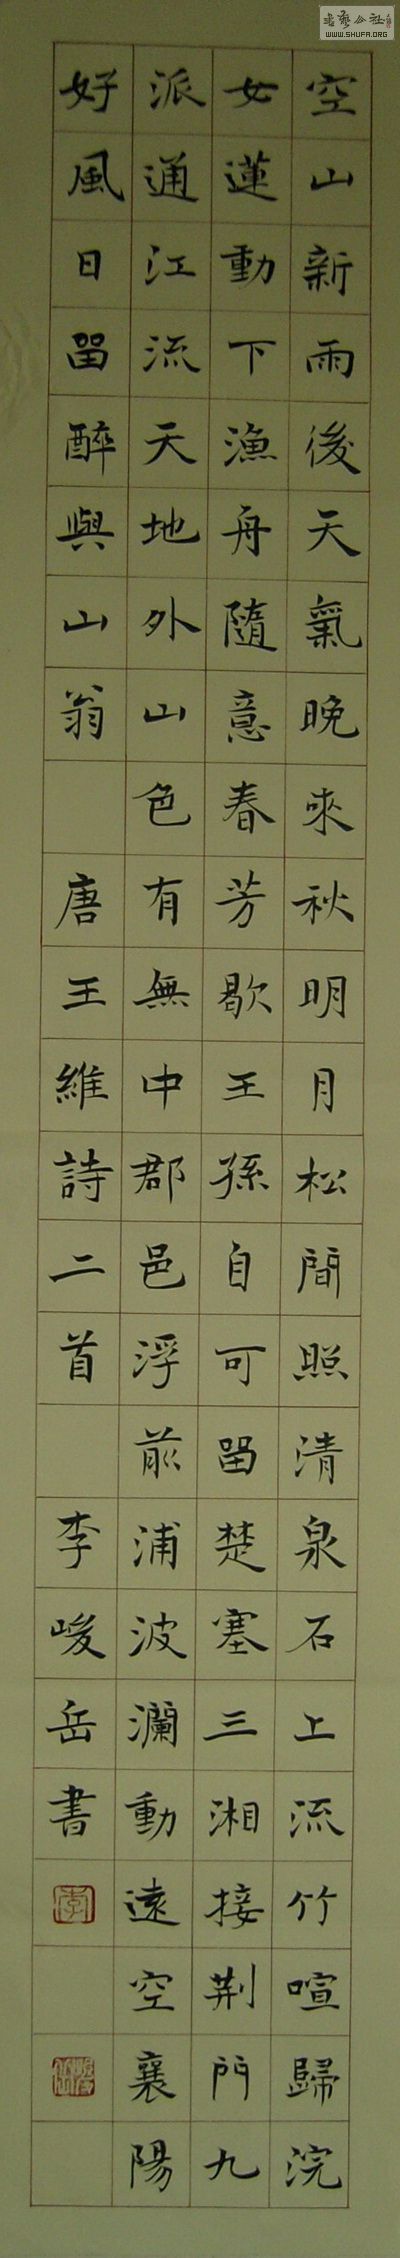 空山新雨後天氣晚來秋明月松間照清泉石上流竹喧歸浣
女蓮動下漁舟隨意春芳歇王孫自可留楚塞三湘接荆門九
派通江流天地外山色有無中郡邑浮前浦波瀾動遠空襄陽
好風日留醉與山翁 唐王維詩二首 李峻岳書
李
書藝公社
WWW.SHUFA.ORG